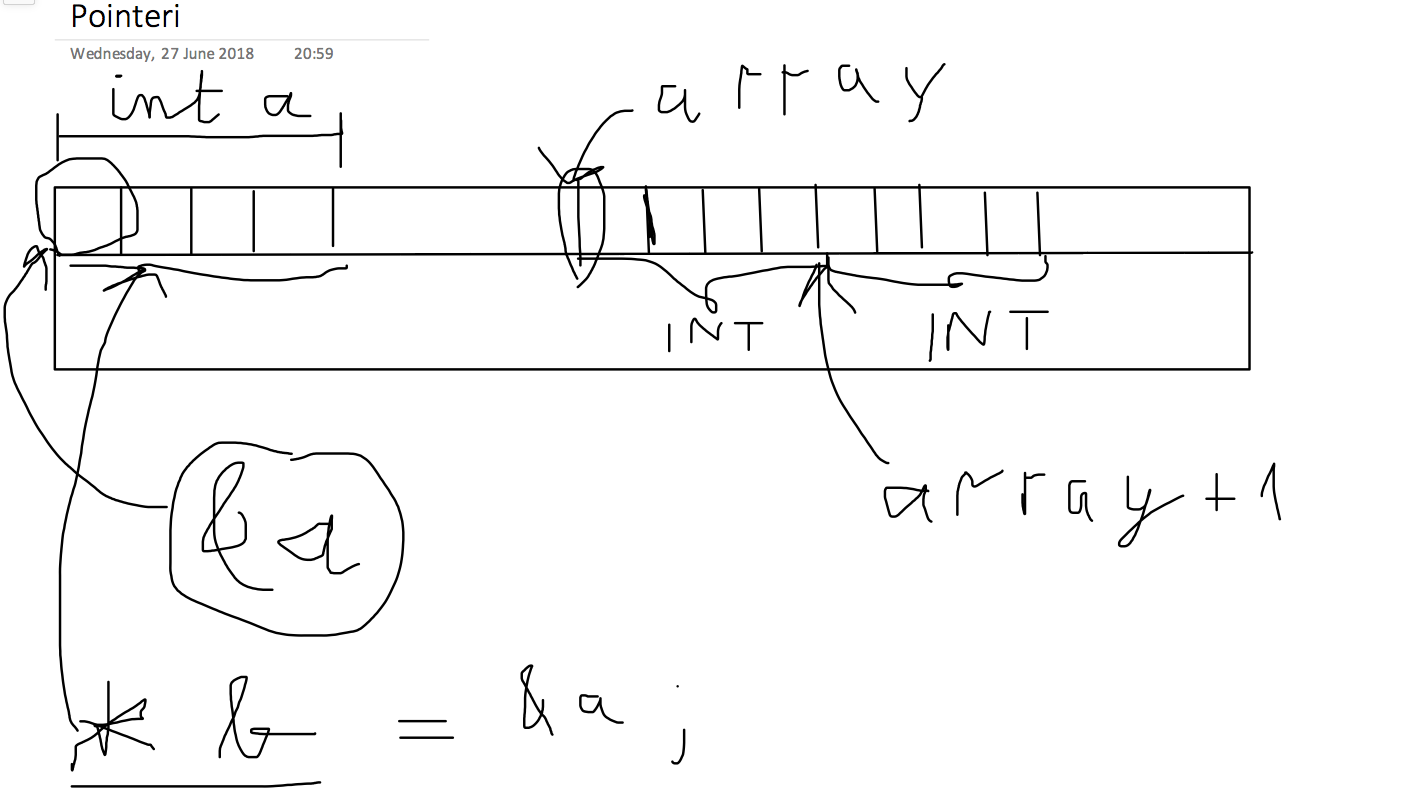 Pointeri
Wednesday, 27 June 2018 20:59
int a
array
INT INT
&a
array+1
* b = &a;